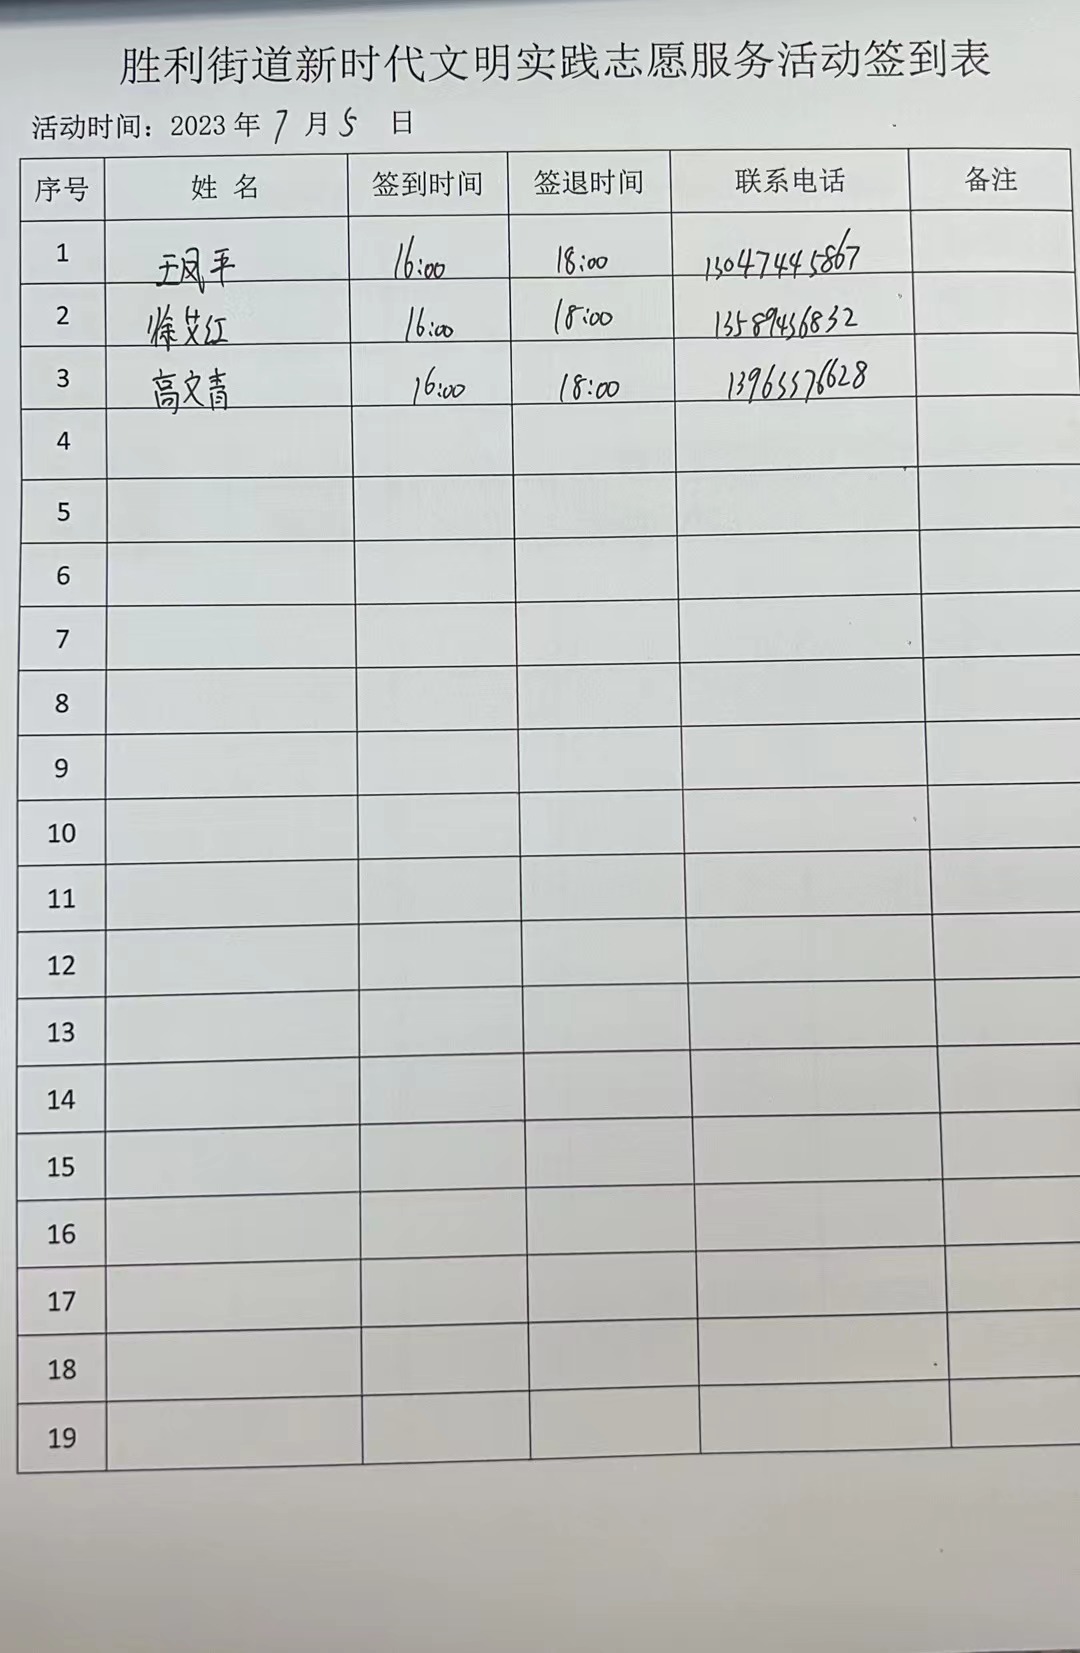 胜利街道新时代文明实践志愿服务活动签到表
活动时间：2023年7月5日
序号 姓名 签到时间 签退时间 联系电话 备注
1 王凤平 16:00 18:00 13047445867
2 徐艾红 16:00 18:00 13589456832
3 高文青 16:00 18:00 13963576628
4
5
6
7
8
9
10
11
12
13
14
15
16
17
18
19